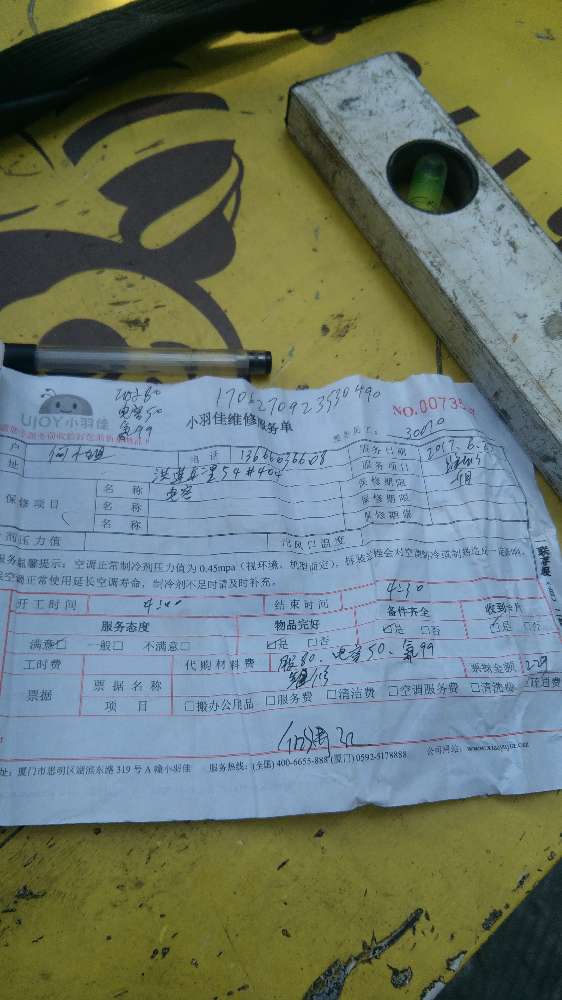 1705270923530490
电容50
氟99
UJOY小羽佳
小羽佳维修服务单
NO.00735
30010
户 电话 13666036608 服务日期 2017.6.
地 54#404 服务项目
保修项目 名称 电容 保修期限
名称 保修期限
名称 保修期限
剂压力值 出风口温度
服务温馨提示：空调正常制冷剂压力值为0.45mpa（视环境、机型而定），拆装
空调正常使用延长空调寿命，制冷剂不足时请及时补充。
开工时间 4:00 结束时间 4:30
服务态度 物品完好 备件齐全 收到卡片
满意□ 一般□ 不满意□ □是 □否 □是 □否 □是 □否
工时费 代购材料费 电容50、氟99 229
票据 票据名称 维修
项目 □搬办公用品 □服务费 □清洁费 □空调服务费 □清洗费
址：厦门市思明区湖滨东路319号A幢小羽佳 服务热线：(全国) 400-6655-888 (厦门) 0592-5178888 公司网站：www.xiaoyujia.com